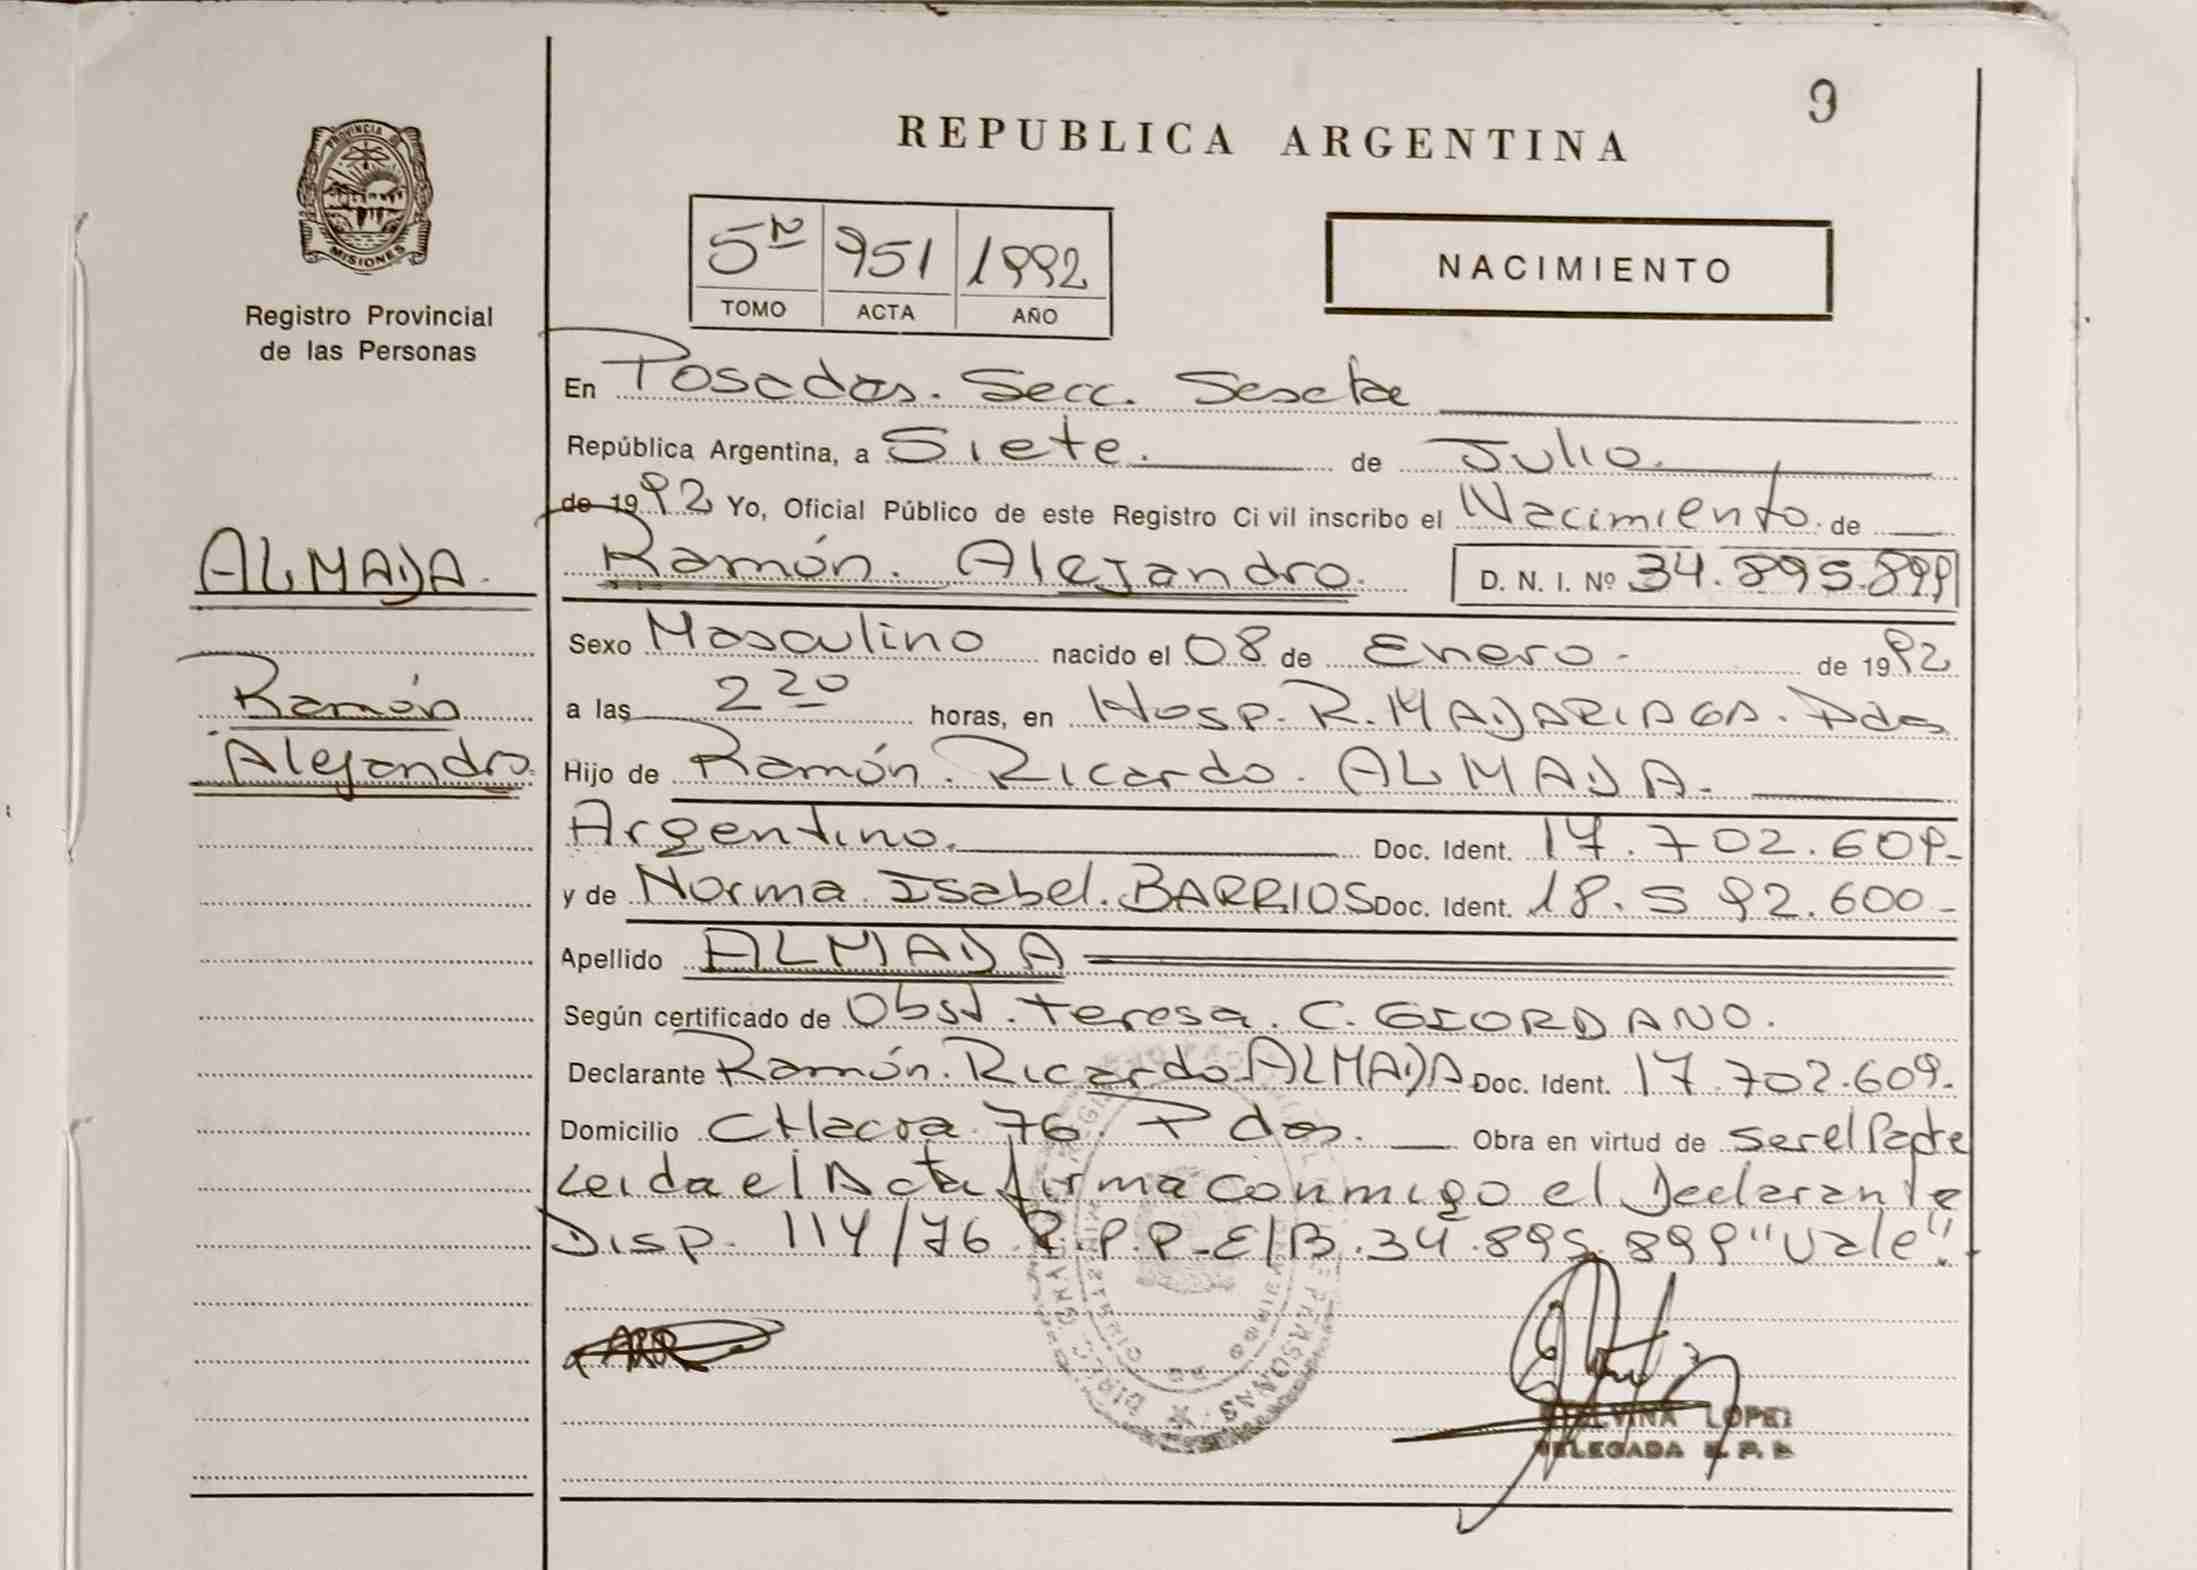 9
REPUBLICA ARGENTINA
PROVINCIA DE
MISIONES
Registro Provincial
de las Personas
5º 951 1992
TOMO ACTA AÑO
NACIMIENTO
En Posadas. Secc. Sexta
República Argentina, a Siete. de Julio.
de 1992 Yo, Oficial Público de este Registro Civil inscribo el Nacimiento. de
ALMADA.
Ramón. Alejandro. D. N. I. Nº 34.895.899
Sexo Masculino nacido el 08 de Enero. de 1992
Ramón
a las 2 20 horas, en Hosp. R. MADARIAGA. Pdas
Alejandro.
Hijo de Ramón. Ricardo. ALMADA.
Argentino. Doc. Ident. 17.702.609-
y de Norma. Isabel. BARRIOS Doc. Ident. 18.592.600-
Apellido ALMADA
Según certificado de Obst. Teresa. C. GIORDANO.
Declarante Ramón. Ricardo ALMADA Doc. Ident. 17.702.609.
Domicilio CHacra 76. Pdas. Obra en virtud de ser el Padre
Leida el Acta firma conmigo el Declarante
Disp. 114/76 R.P.P-E/B.34.895.899 "Vale".
LOPEZ
DELEGADA R. P. P.